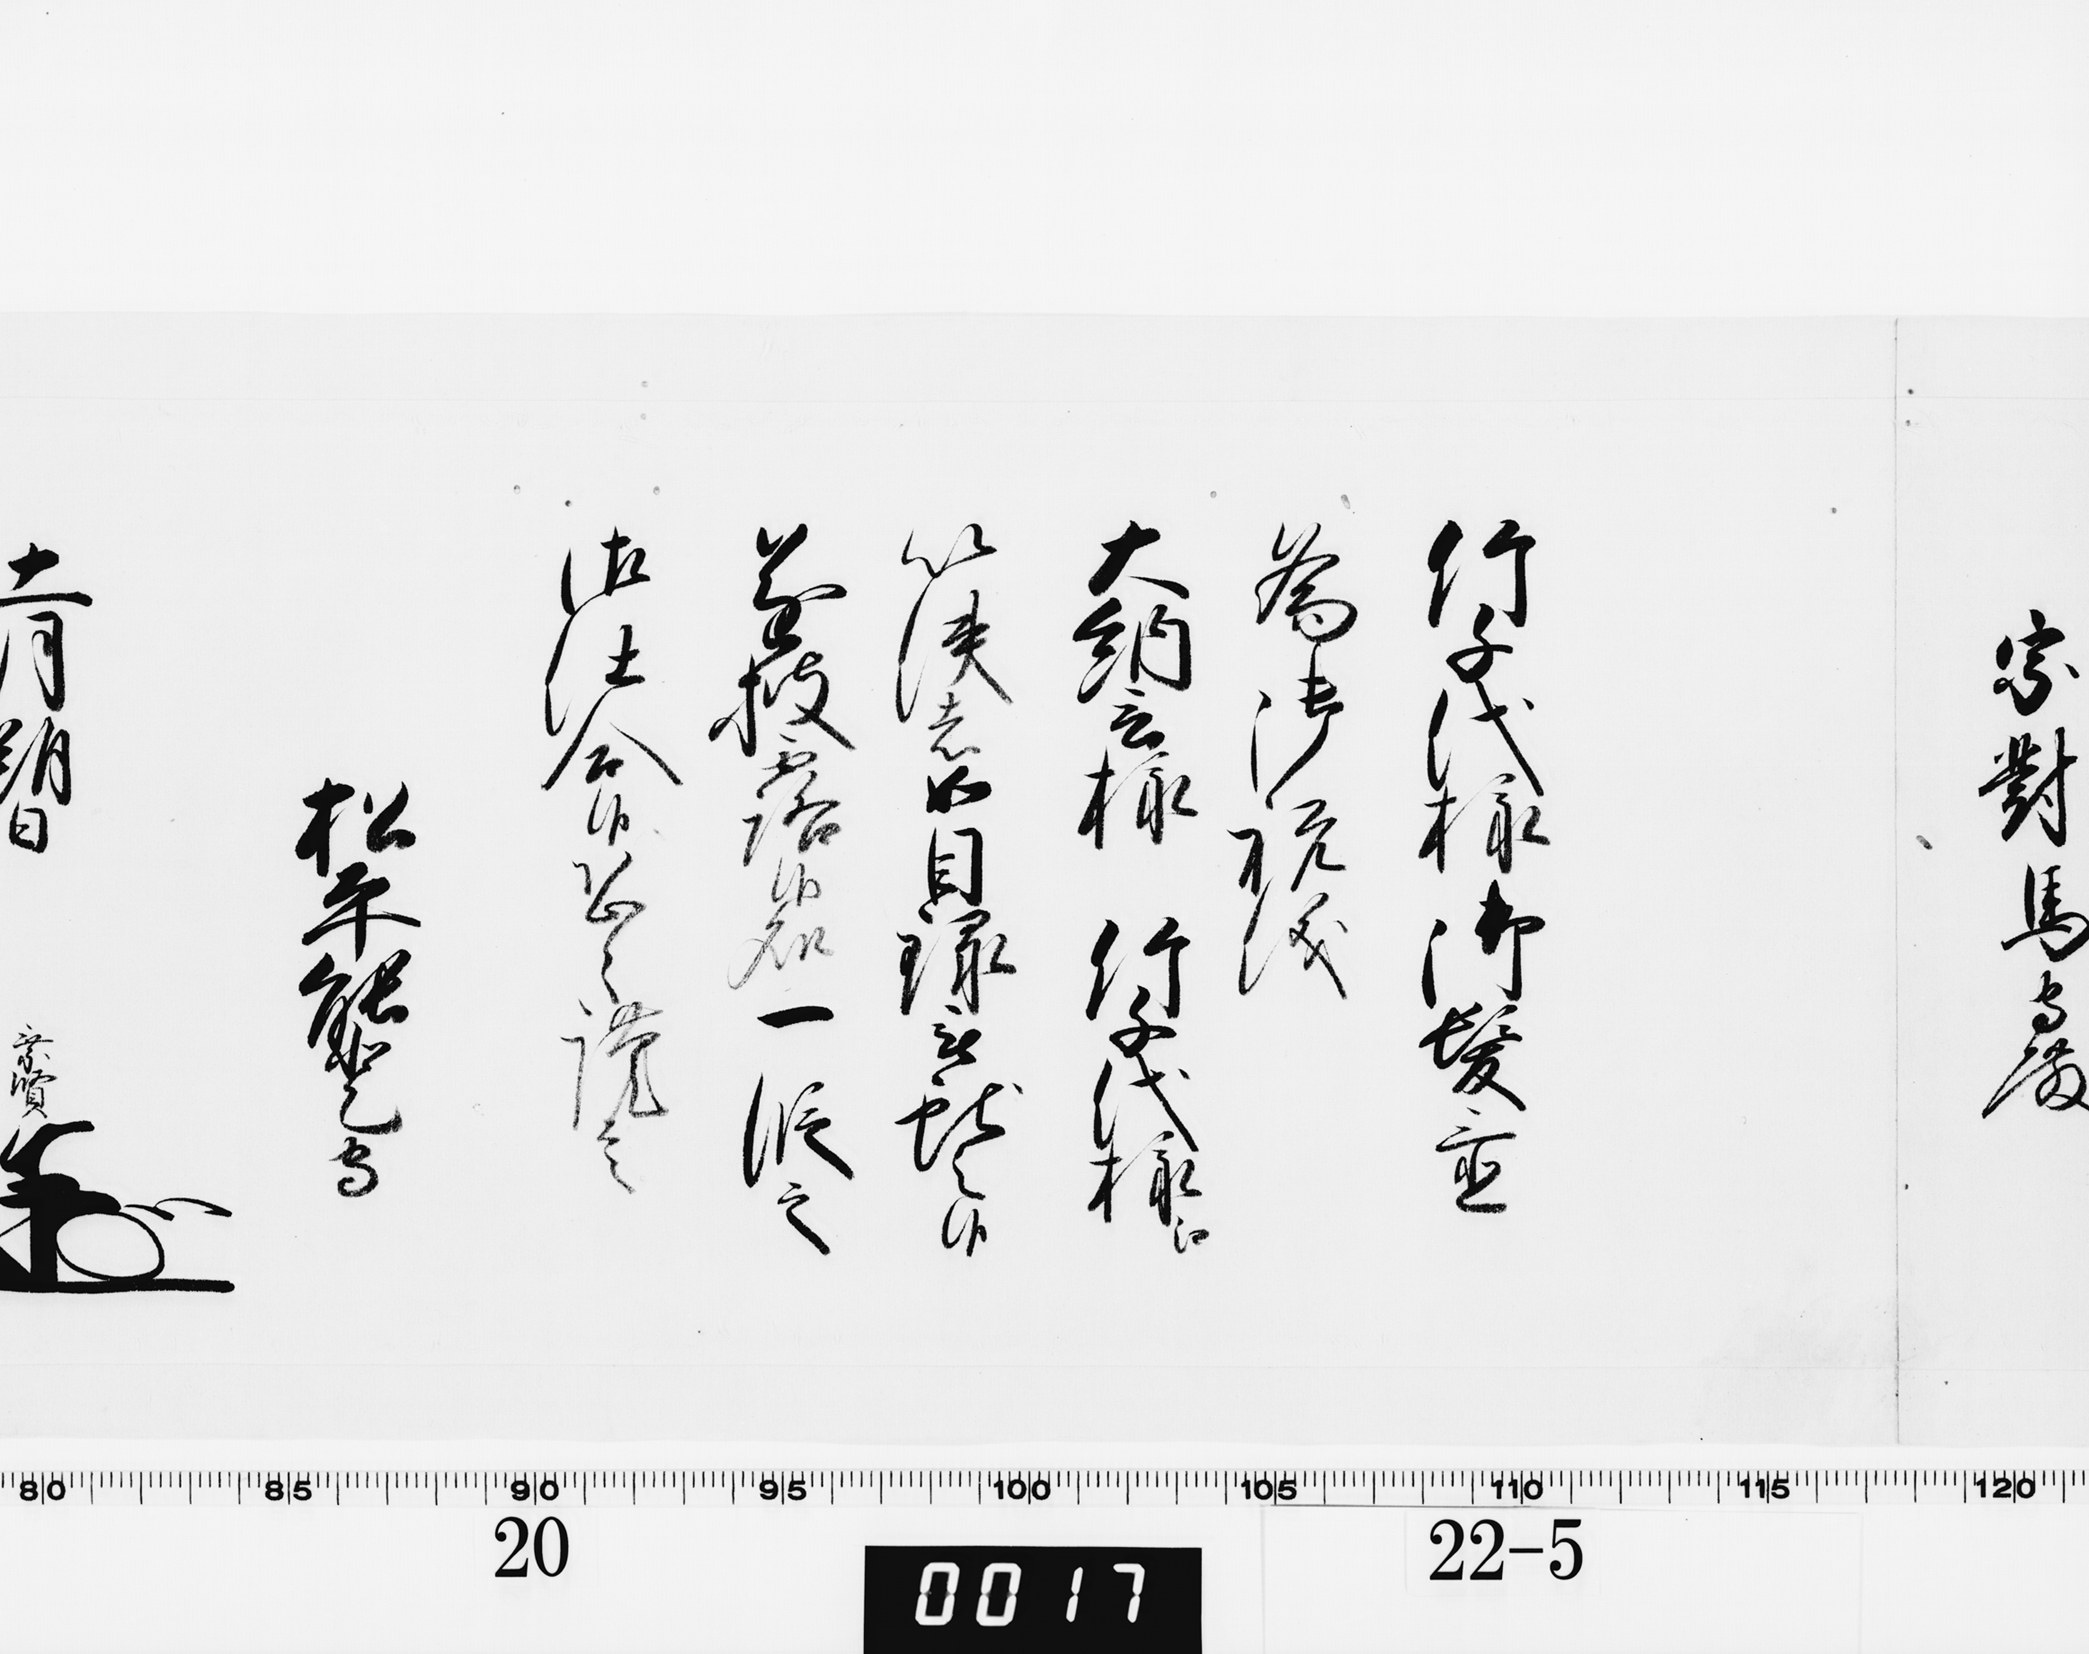 宗對馬守殿
竹千代様御髪置
為御祝儀
大納言様 竹千代様江
以使者如目録被献之候
遂披露候處一段之
御仕合候恐々謹言
松平能登守
十一月朔日
乗賢
80 85 90 95 100 105 110 115 120
20
22-5
0017